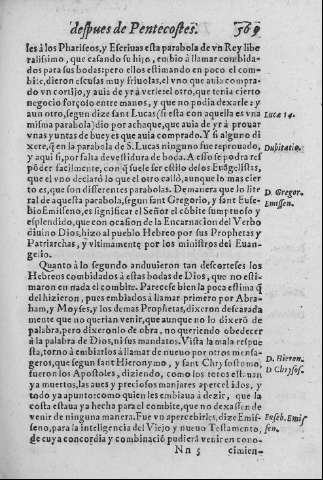 despues de Pentecostes. 569
les à los Phariseos, y Escriuas esta parabola de vn Rey libe
ralissimo, que casando su hijo, embio à llamar combida-
dos para sus bodas: pero ellos estimando en poco el com-
bite, dieron escusas muy friuolas, el vno que auia compra-
do vn cortijo, y auia de yr à verle: el otro, que tenia cierto
negocio forçoso entre manos, y que no podia dexarle: à y
aun otro, segun dize sant Lucas (si esta con aquella es vna
misma parabola) dio por achaque, que auia de yr à prouar
vnas yuntas de bueyes que auia comprado. Y si alguno di
xere, q̃ en la parabola de S. Lucas ninguno fue reprouado,
y aqui si, por falta de vestidura de boda. A esso se podra res
põder facilmente, con q̃ suele ser estilo de los Euãgelistas,
que el vno declarò lo que el otro callò, aunque lo mas cier
to es, que son differentes parabolas. De manera que lo lite
ral de aquesta parabola, segun sant Gregorio, y sant Euse-
bio Emisseno, es significar el Señor el cõbite sumptuoso y
esplendido, que con ocasion de la Encarnacion del Verbo
diuino Dios, hizo al pueblo Hebreo por sus Prophetas y
Patriarchas, y vltimamente por los ministros del Euan-
gelio.
Quanto à lo segundo anduuieron tan descorteses los
Hebreos combidados à estas bodas de Dios, que no esti-
maron en nada el combite. Parecese bien la poca estima q̃
del hizieron, pues embiados à llamar primero por Abra-
ham, y Moyses, y los demas Prophetas, dixeron descarada
mente que no querian venir, que aunque no lo dixerõ de
palabra, pero dixeronlo de obra, no queriendo obedecer
à la palabra de Dios, ni sus mandatos. Vista la mala respue
sta, tornò à embiarlos à llamar de nueuo por otros mensa-
geros, que segun sant Hieronymo, y sant Chrysostomo,
fueron los Apostoles, diziendo, como los toros estauan
ya muertos, las aues y preciosos manjares apercebidos, y
todo ya apunto: como quien les embiaua à dezir, que la
costa estaua ya hecha para el combite, que no dexassen de
venir de ninguna manera. Fue vn apercebirles, dize Emis-
seno, para la inteligencia del Viejo y nueuo Testamento,
de cuya concordia y combinacion pudierà venir en cono-
Nn 5 cimien-
Lucæ 14.
Dubitatio.
D. Gregor.
Emissen.
D. Hieron.
D Chrysos.
Euseb. Emis
sen.